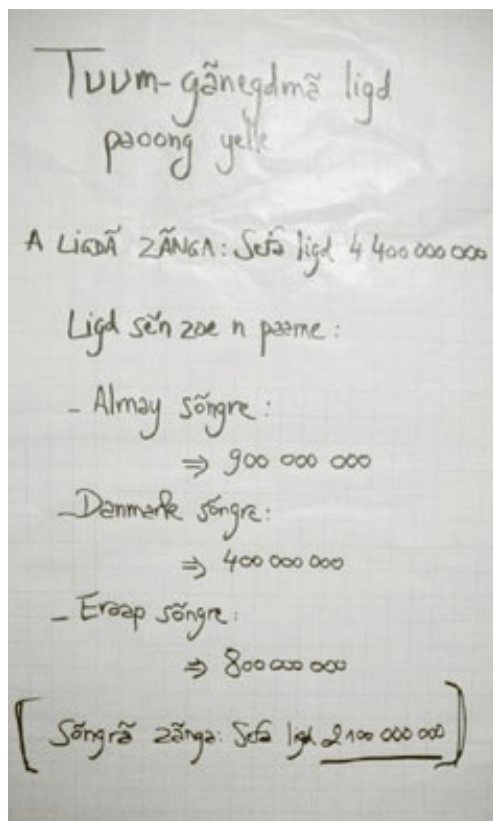 Tuum-gãnegdmã ligd
paoong yelle
A LIGDÃ ZÃNGA: Sefa ligd 4 400 000 000
Ligd sẽn zoe n paame:
- Almay sõngre:
⇒ 900 000 000
- Danmark sõngre:
⇒ 400 000 000
- Eroap sõngre:
⇒ 800 000 000
[Sõngrã zãnga: Sefa ligd 2 100 000 000]